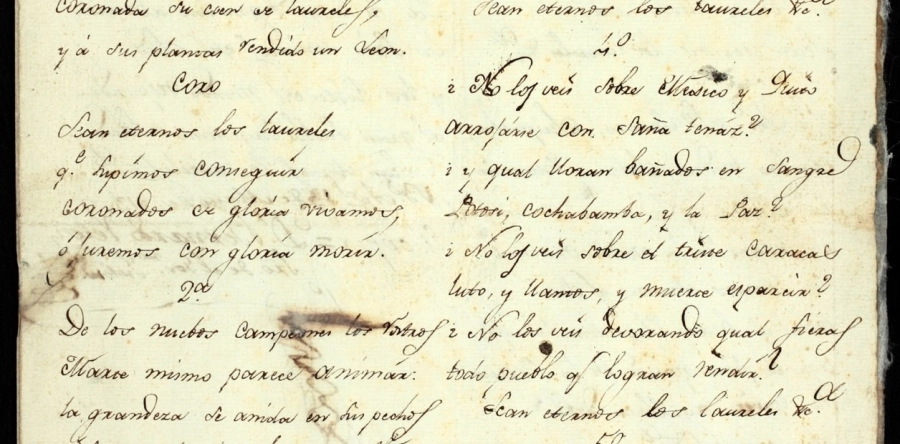 coronada su cien de laureles,
y á sus plantas rendido un Leon.
Coro
Sean eternos los laureles
q.e supimos conseguir
coronados de gloria vivamos,
ó juremos con gloria morir.
2.a
De los nuebos campeones los rostros
Marte mismo parece animar:
la grandeza se anida en sus pechos
Sean eternos los laureles &c.a
4.o
¿ No los veis sobre Mexico y Quito
arrojarse con saña tenáz?
¿ y qual lloran bañados en sangre
Potosi, cochabamba, y la Paz?
¿ No los veis sobre el triste caracas
luto, y llantos, y muerte esparcir?
¿ No los veis devorando qual fieras
todo pueblo q.e logran rendir?
Sean eternos los laureles &c.a